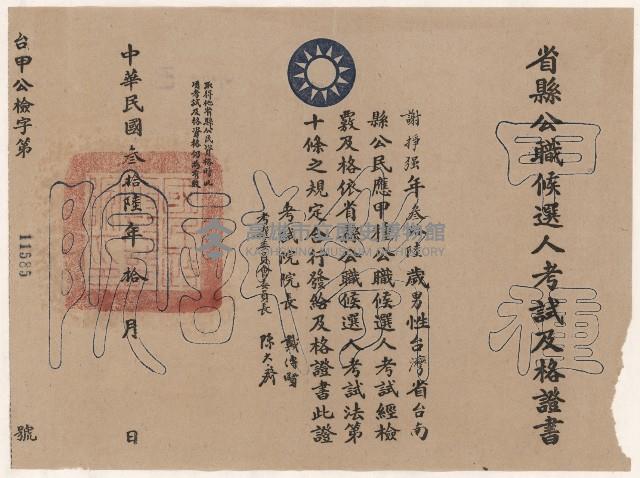 省縣公職候選人考試及格證書
甲種
謝掙强年叁拾陸歲男性台灣省台南
縣公民應甲種公職候選人考試經檢
覈及格依省縣公職候選人考試法第
十條之規定合行發給及格證書此證
考試院院長 戴傳賢
考選委員會委員長 陳大齊
取得他省縣公民資格時此
項考試及格資格仍為有效
中華民國叁拾陸年拾月 日
台甲公檢字第 11585 號
高雄市立歷史博物館
KAOHSIUNG MUSEUM OF HISTORY